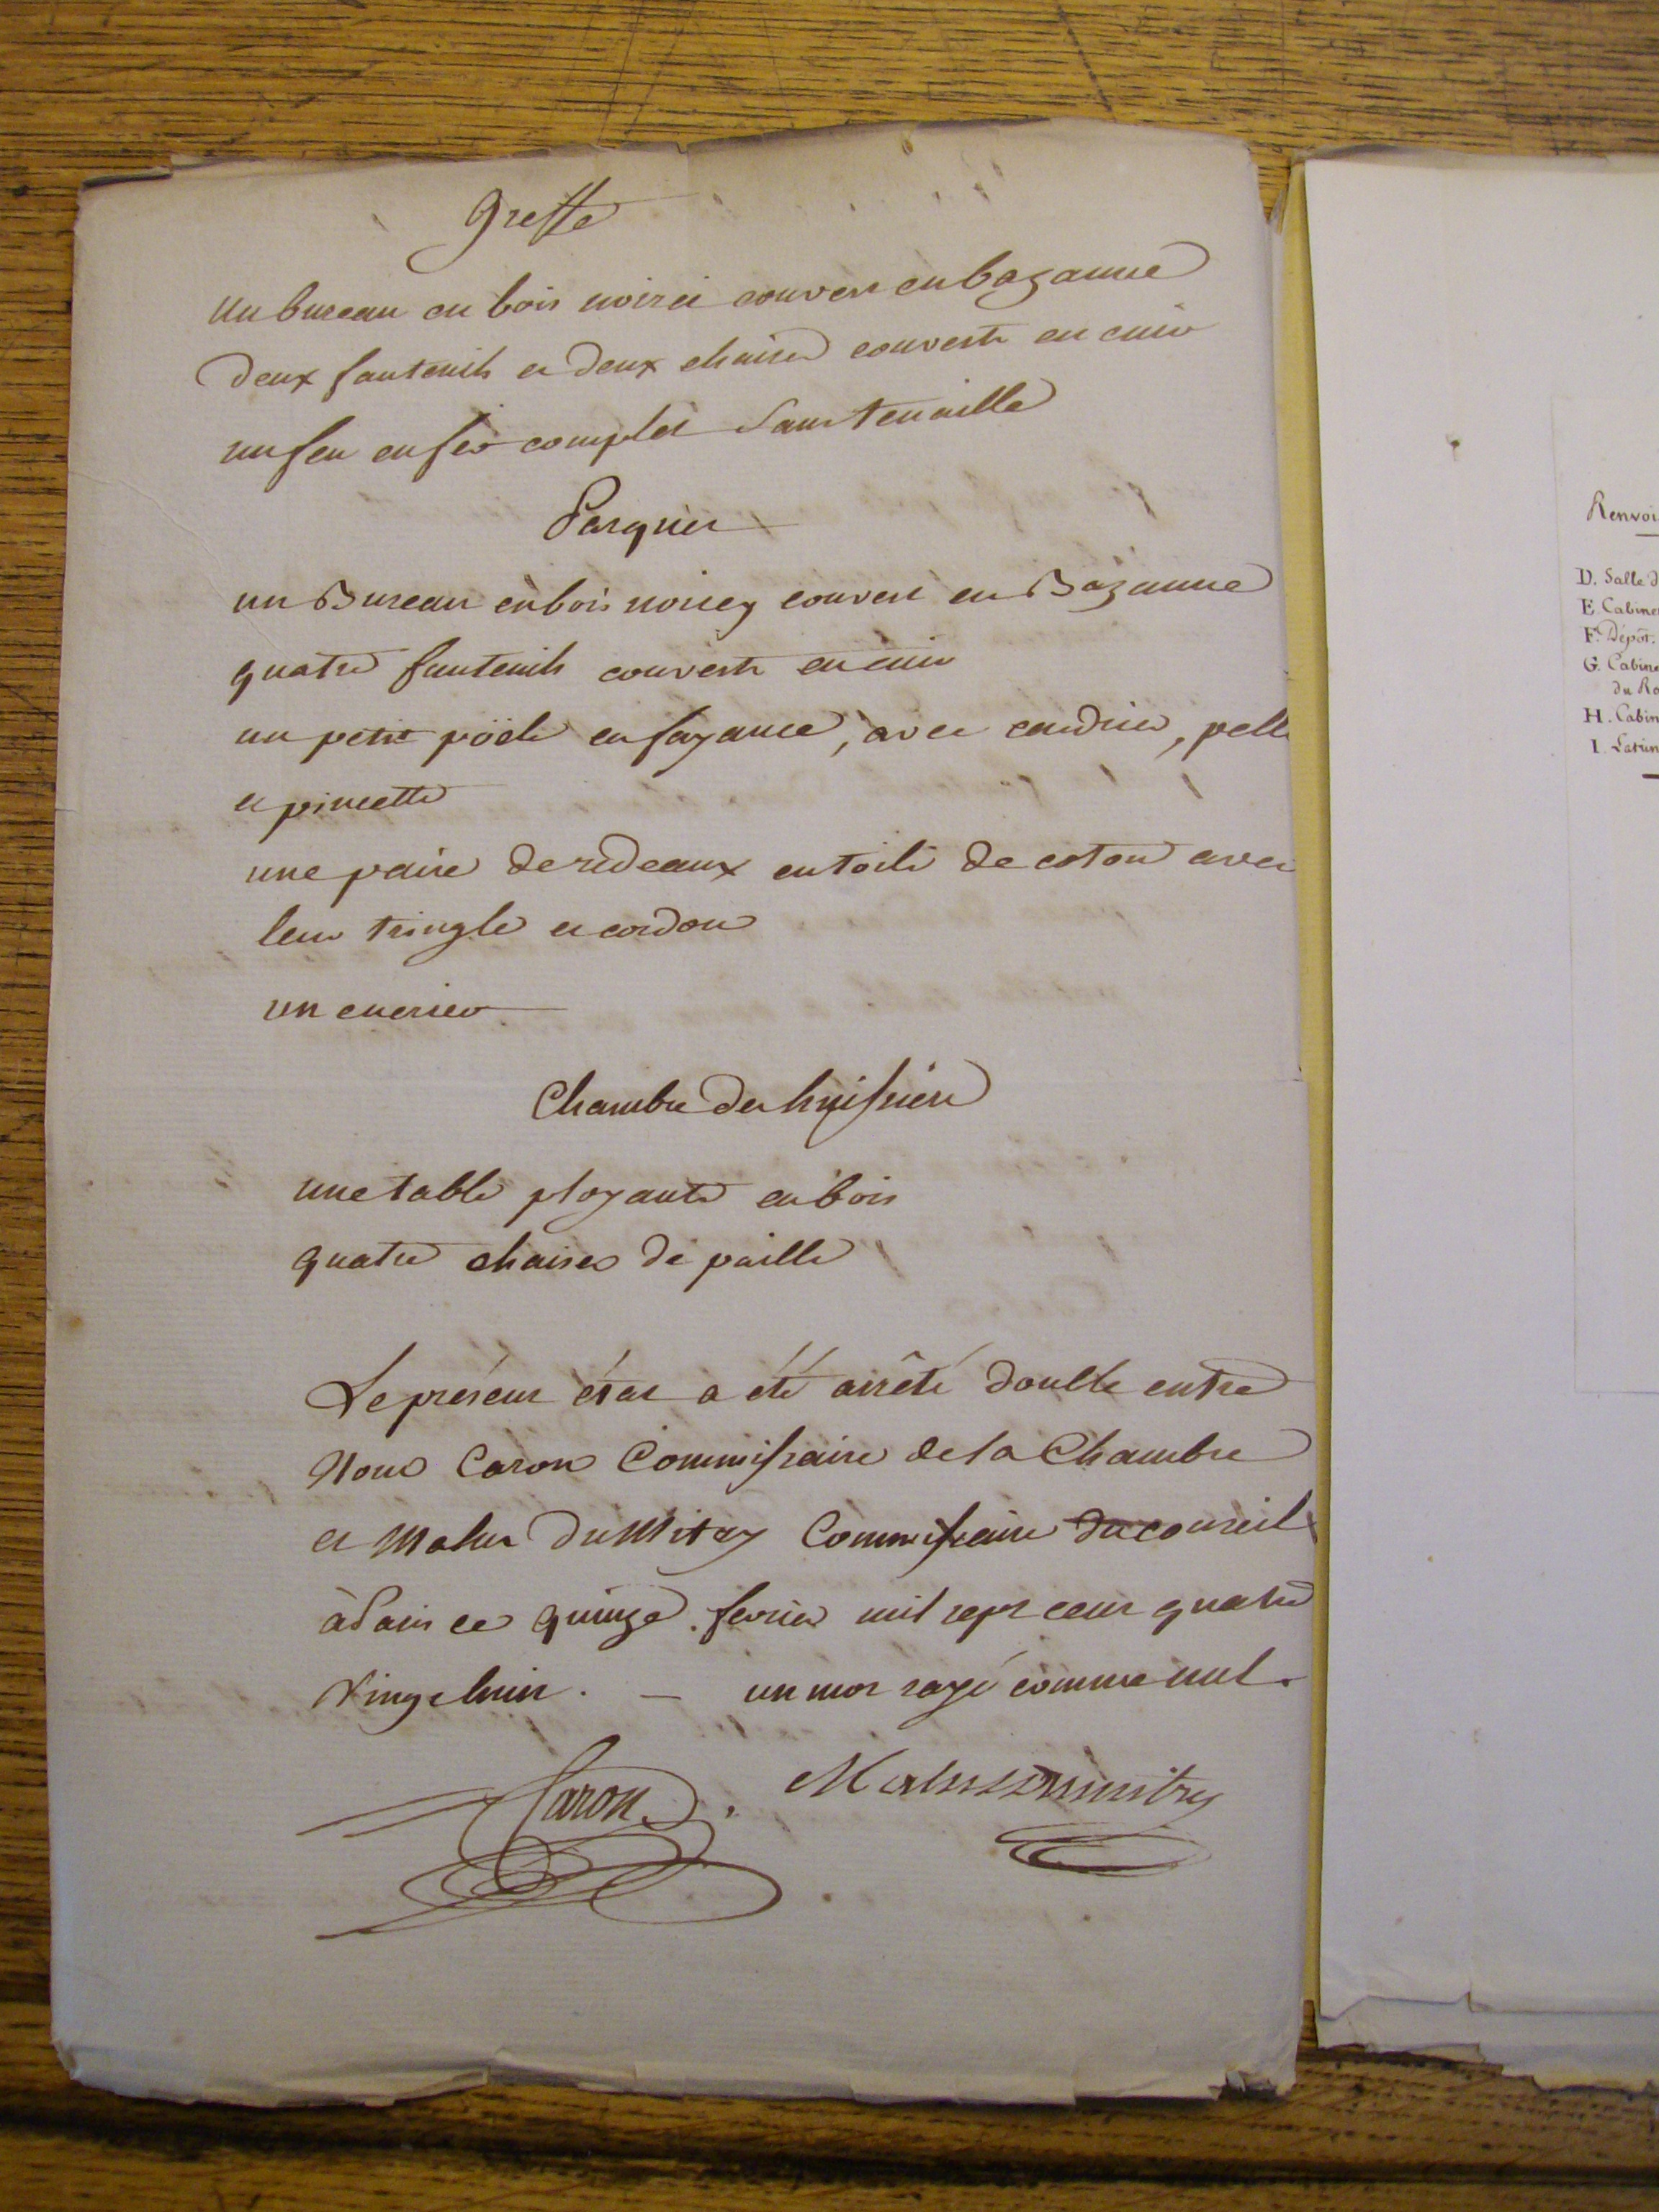 Greffe
Un bureau en bois noirci couvert en bazanne
deux fauteuils et deux chaises couverts en cuir
un feu en fer complet sans tenaille
Parquet
un Bureau en bois noircy couvert en Bazanne
quatre fauteuils couverts en cuir
un petit pöele en fayance, avec cendrier, pelle
et pincette
une paire de rideaux en toile de coton avec
leur tringle et cordon
un encrier
Chambre des huissiers
une table ployante en bois
quatre chaises de paille
Le présent état a été arrêté double entre
Nous Caron Commissaire de la Chambre
et Malus Dumitry Commissaire du conseil
à Paris ce quinze fevrier mil sept cent quatre
vingt huit. — un mot rayé comme nul.
Caron. Malus Dumitry
Renvoi
D. Salle d
E. Cabine
F. Dépôt.
G. Cabine
du Ro
H. Cabin
I. Latrin